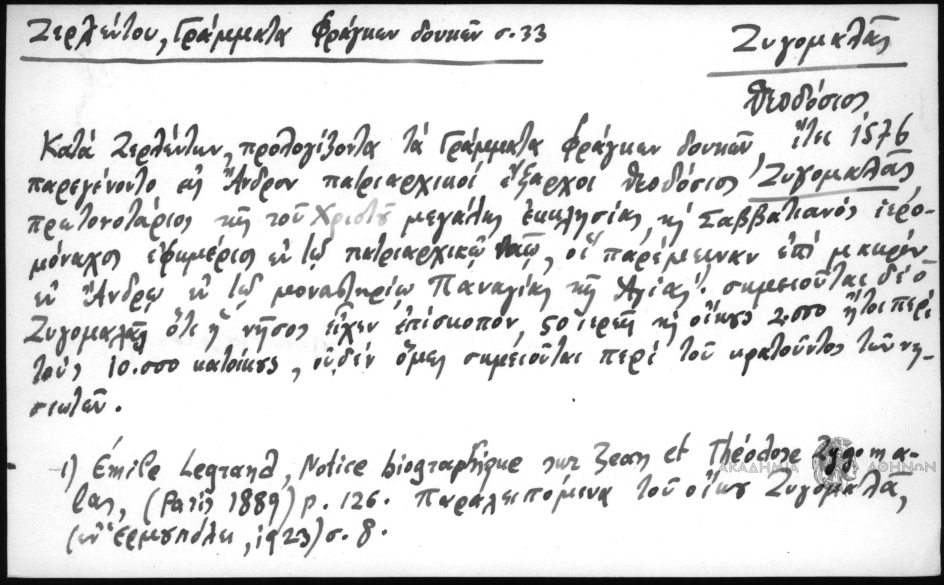 Ζερλέντου, Γράμματα Φράγκων δουκῶν σ. 33
Ζυγομαλᾶς
Θεοδόσιος
Κατά Ζερλέντην, προλογίζοντα τά Γράμματα Φράγκων δουκῶν, ἔτει 1576
παρεγένοντο εἰς Ἄνδρον πατριαρχικοί ἔξαρχοι Θεοδόσιος Ζυγομαλᾶς,
πρωτονοτάριος τῆς τοῦ Χριστοῦ μεγάλης ἐκκλησίας, κ Σαββατιανός ἱερο-
μόναχος ἐφημέριος ἐν τῷ πατριαρχικῷ ναῷ, οἵ παρέμειναν ἐπί μακρόν
ἐν Ἄνδρῳ ἐν τῷ μοναστηρίῳ Παναγίας τῆς Ἁγίας. σημειοῦται δέ ὁ
Ζυγομαλᾶς ὅτι ἡ νῆσος εἶχεν ἐπίσκοπον, 50 ἱερεῖς κ οἴκους 2.000 ἤτοι περί
τούς 10.000 κατοίκους, οὐδέν ὅμως σημειοῦται περί τοῦ κρατοῦντος τῶν νη-
σιωτῶν.
1) Émile Legrand, Notice biographique sur Jean et Théodose Zygoma-
las, (Paris 1889) p. 126. Παραλειπόμενα τοῦ οἴκου Ζυγομαλᾶ,
(ἐν Ἑρμουπόλει, 1923) σ. 8.
ΑΚΑΔΗΜΙΑ ΑΘΗΝΩΝ